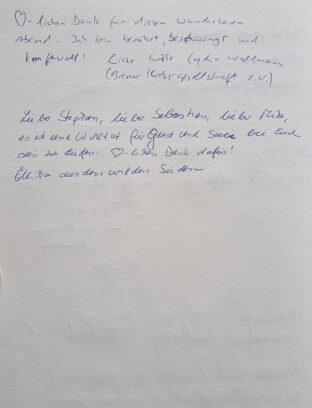 ♡-lichen Dank für diesen wunderbaren
Abend. Ich bin berührt, beschwingt und
kraftvoll! Liebe Grüße Lydia
(Bremer Krebsgesellschaft e.V.)
Lieber Stephan, lieber Sebastian, lieber
es ist eine Wohltat für Geist und Seele bei Euch
sein zu dürfen. ♡-lichen Dank dafür!
aus dem wilden Süden